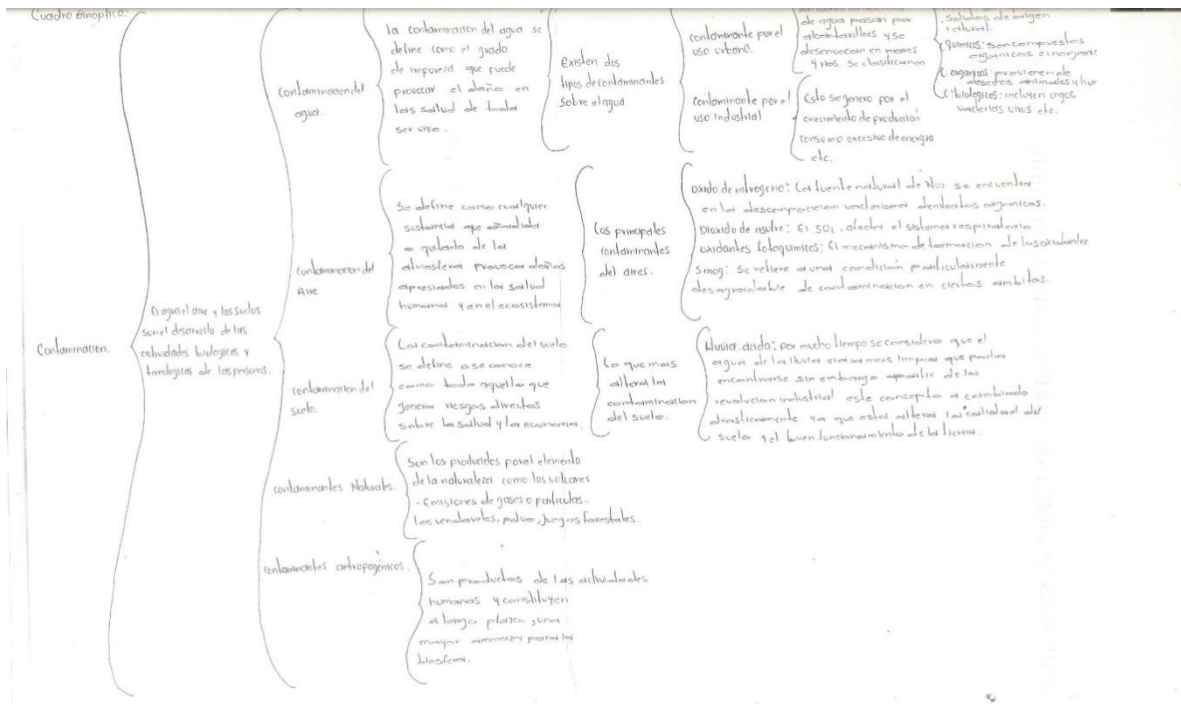 Cuadro sinoptico:
Contaminacion.
El agua el aire y los suelos
son el desarrollo de las
actividades biologicas y
de las personas.
contaminacion del
agua.
la contaminacion del agua se
define como el grado
de impureza que puede
provocar el daño en
las salud de todo
ser vivo.
Existen dos
tipos de contaminantes
sobre el agua
contaminante por el
uso urbano.
de agua pasan por
alcantarillas y se
desembocan en mares
y rios. se clasifican
Solidos de origen
natural.
quimicos: son compuestos
organicos e inorganic
organicos: provienen de
desechos animales y hum
biologicos: incluyen ongos,
bacterias virus etc.
contaminante por el
uso Industrial
Esto se genero por el
crecimiento de produccion
consumo excesivo de energia
etc.
contaminacion del
Aire
Se define como cualquier
sustancia que añadida
o quitada de la
atmosfera provoca daños
apresiados en la salud
humana y en el ecosistema
Los principales
contaminantes
del aires.
oxido de nitrogeno: La fuente natural de NO2 se encuentra
en la descomposicion bacteriana organicas.
Dioxido de asufre: El SO2, afecta el sistema respiratorio
oxidantes fotoquimicos: El mecanismo de formacion de los oxidantes
Smog: Se refiere a una condicion particularmente
desagradable de contaminacion en ciertos ambitos.
contaminacion del
suelo.
La contaminacion del suelo
se define o se conoce
como todo aquello que
genera riesgos directos
sobre la salud y la economia.
Lo que mas
altera la
contaminacion
del suelo.
lluvia acida: por mucho tiempo se considero que el
agua de la lluvia era la mas limpia que podia
encontrarse sin embargo apartir de la
revolucion industrial este concepto a cambiado
drasticamente ya que esta altera la calidad del
suelo y el buen funcionamiento de la tierra.
contaminantes Naturales.
Son los producidos por el elemento
de la naturaleza como los volcanes
- Emisiones de gases o particulas.
los vendavales, polvo, fuegos forestales.
contaminantes antropogénicos.
Son productos de las actividades
humanas y constituyen
a largo plazo, una
mayor amenaza para la
biosfera.